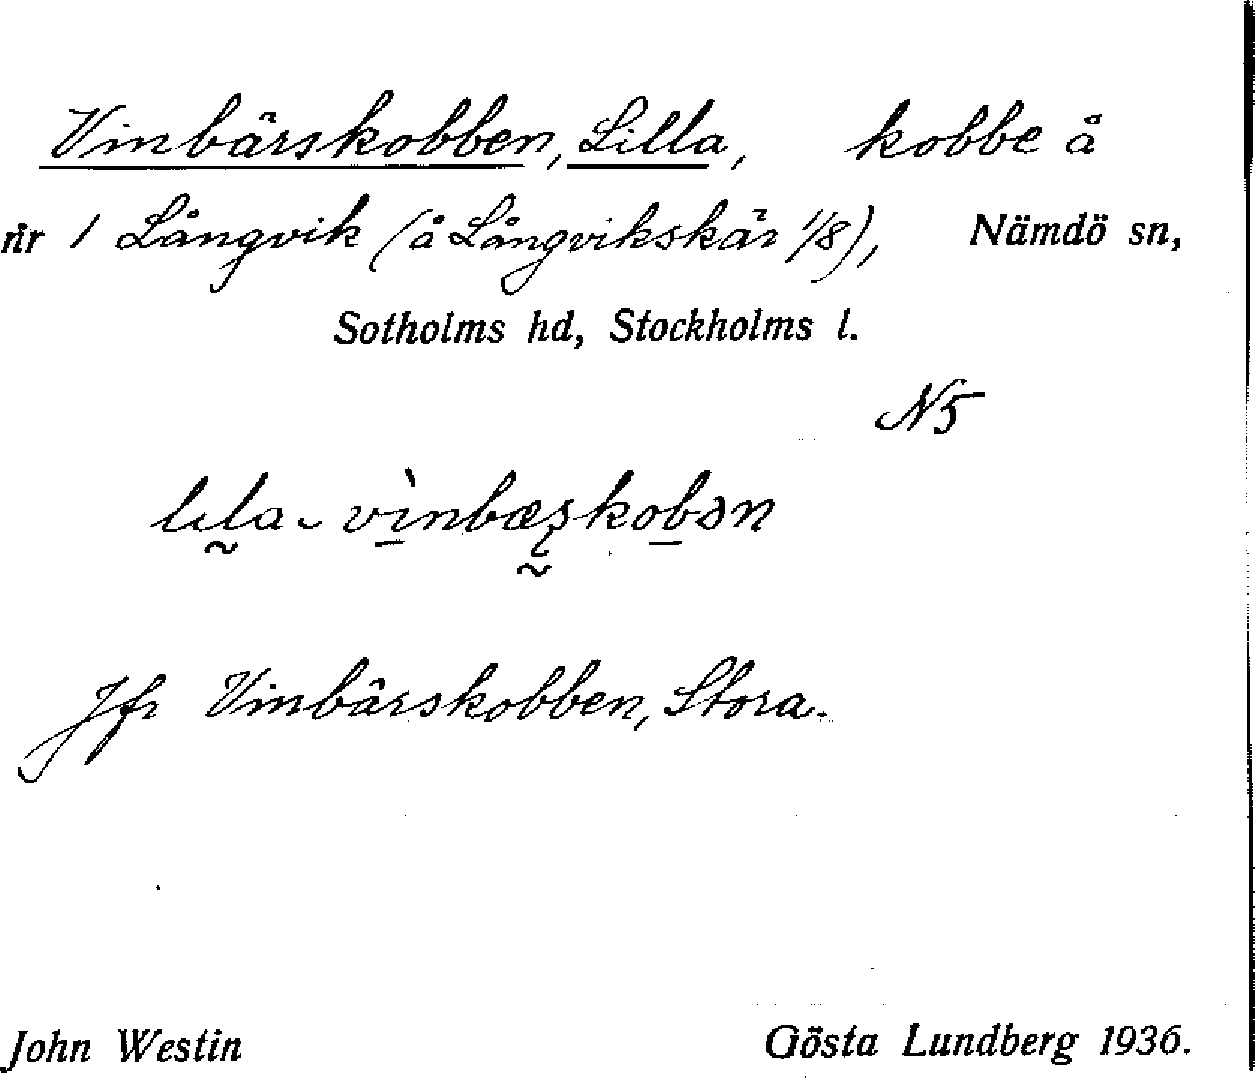 Vinbärskobben, Lilla, kobbe å
nr 1 Långvik (å Långvikskär 1/8), Nämdö sn,
Sotholms hd, Stockholms l.
N5
lıla- vı̀nbæʂkobən
Jfr Vinbärskobben, Stora.
John Westin Gösta Lundberg 1936.